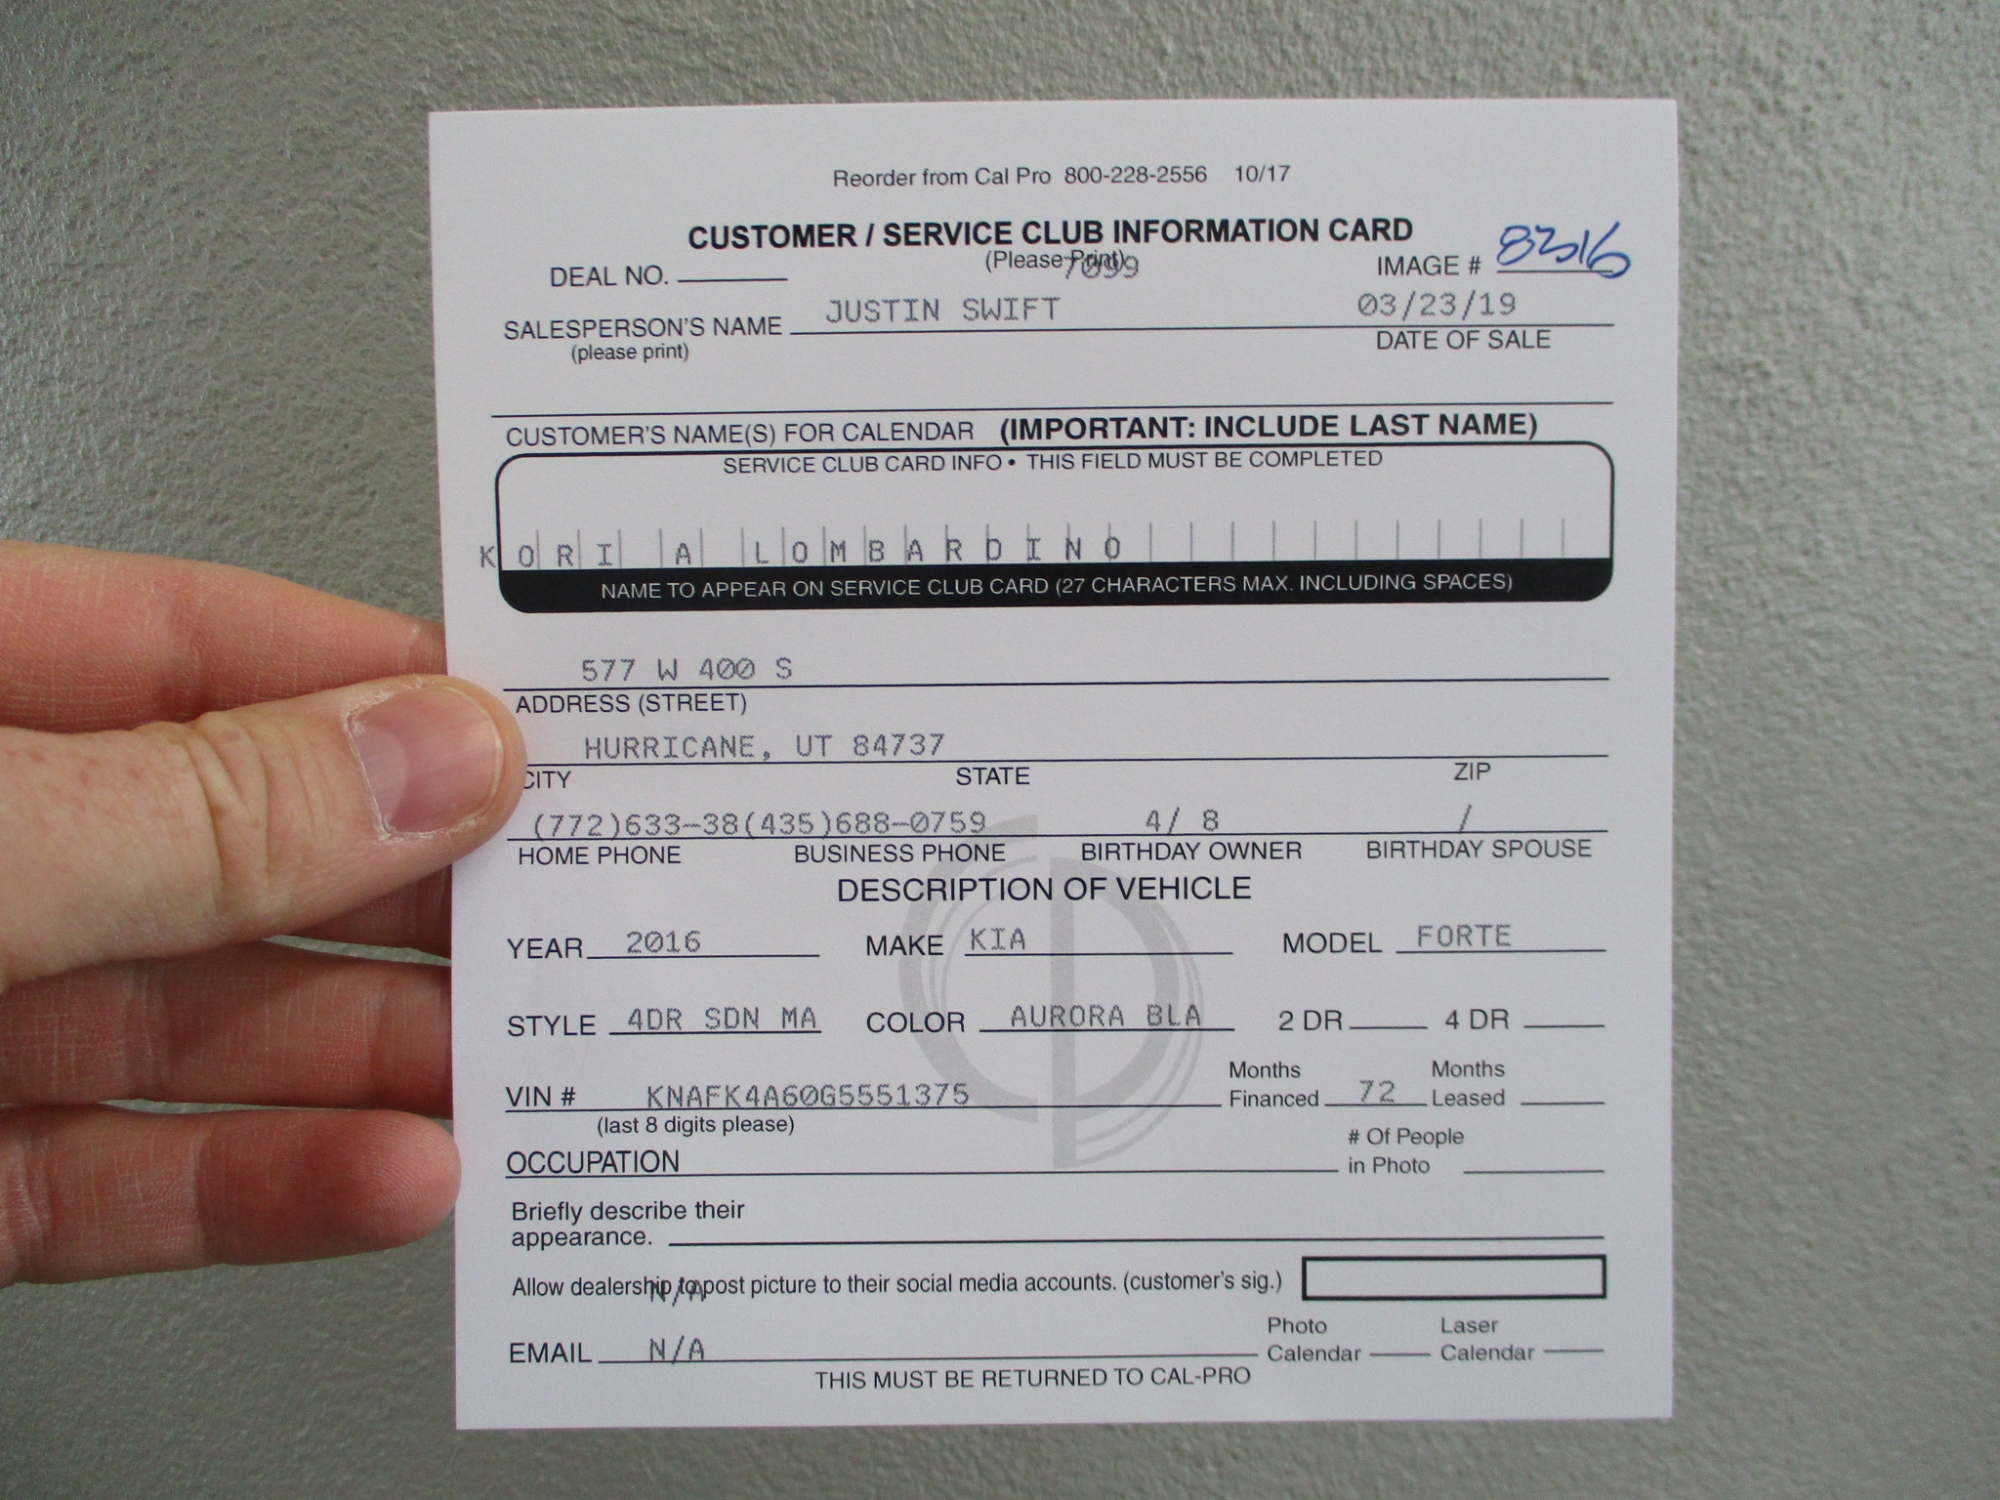 Reorder from Cal Pro 800-228-2556 10/17
CUSTOMER / SERVICE CLUB INFORMATION CARD
(Please Print)
DEAL NO. 7099 IMAGE # 8316
SALESPERSON'S NAME JUSTIN SWIFT 03/23/19
(please print) DATE OF SALE
CUSTOMER'S NAME(S) FOR CALENDAR (IMPORTANT: INCLUDE LAST NAME)
SERVICE CLUB CARD INFO • THIS FIELD MUST BE COMPLETED
KORI A LOMBARDINO
NAME TO APPEAR ON SERVICE CLUB CARD (27 CHARACTERS MAX. INCLUDING SPACES)
577 W 400 S
ADDRESS (STREET)
HURRICANE, UT 84737
CITY STATE ZIP
(772)633-38(435)688-0759 4/ 8 /
HOME PHONE BUSINESS PHONE BIRTHDAY OWNER BIRTHDAY SPOUSE
DESCRIPTION OF VEHICLE
YEAR 2016 MAKE KIA MODEL FORTE
STYLE 4DR SDN MA COLOR AURORA BLA 2 DR 4 DR
VIN # KNAFK4A60G5551375 Months Financed 72 Months Leased
(last 8 digits please)
OCCUPATION # Of People in Photo
Briefly describe their
appearance.
Allow dealership to post picture to their social media accounts. (customer's sig.)
N/A
EMAIL N/A Photo Calendar Laser Calendar
THIS MUST BE RETURNED TO CAL-PRO